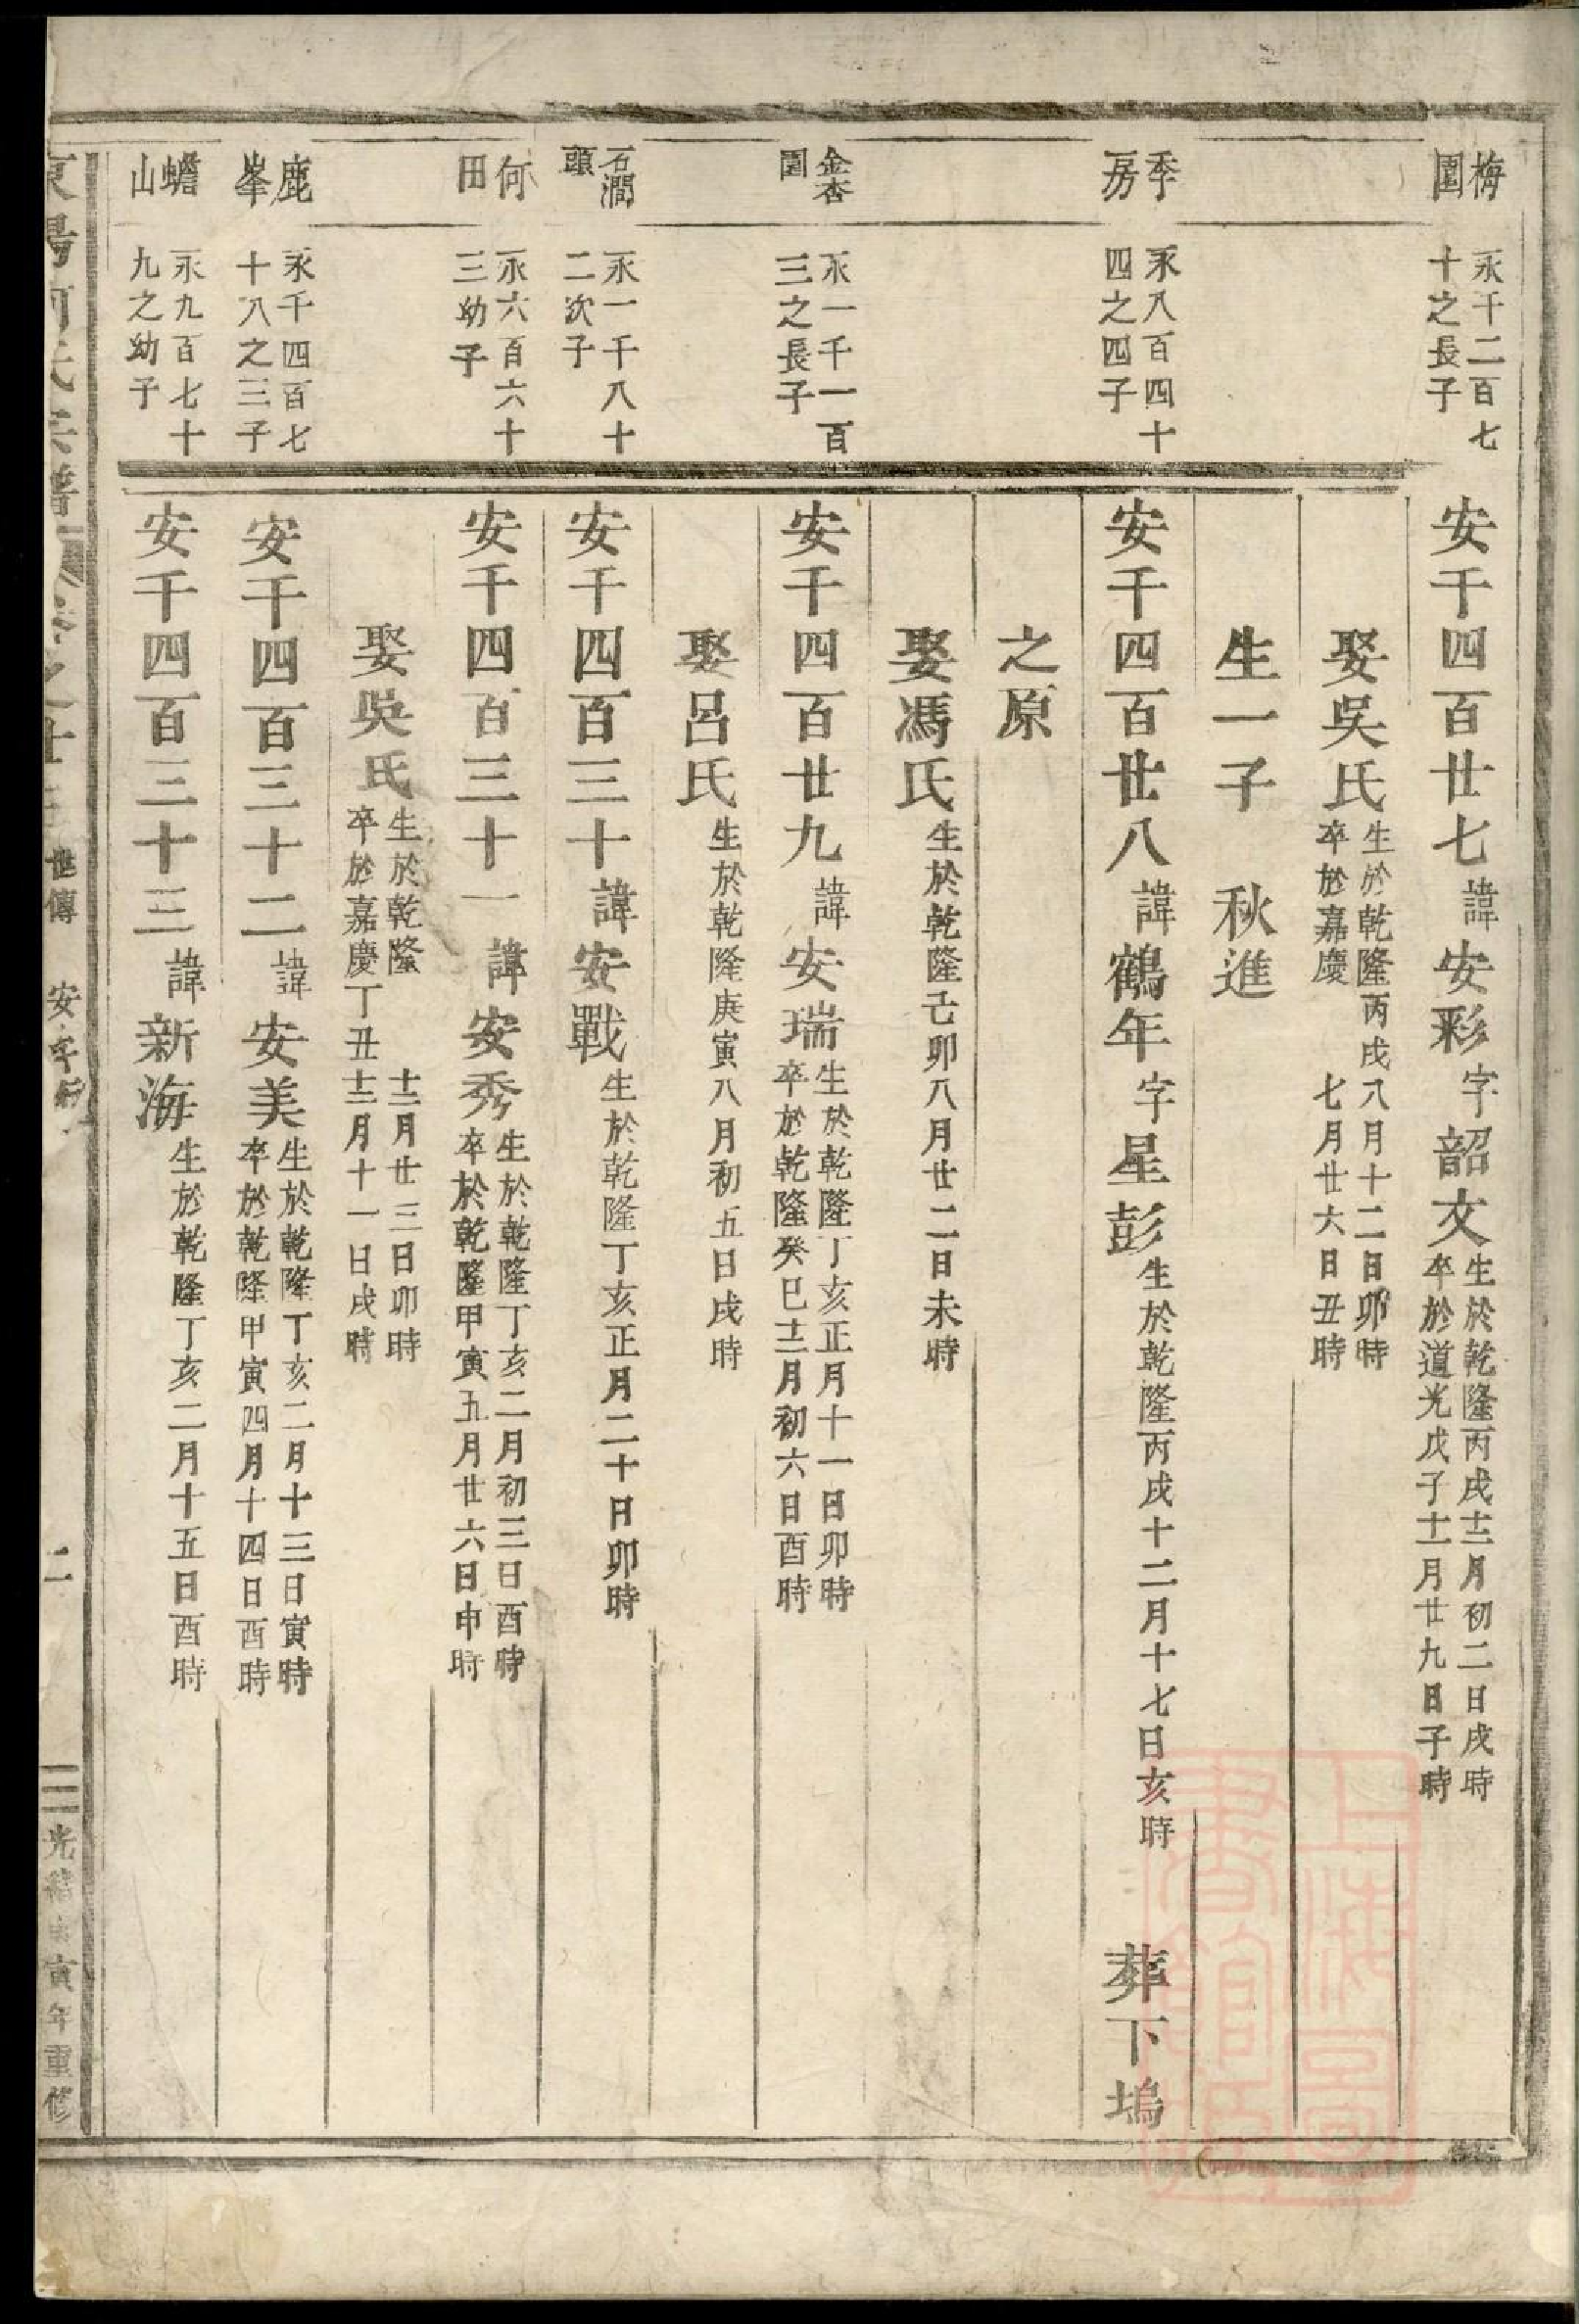 梅園
永千二百七十之長子
安千四百廿七諱安彩字韶文生於乾隆丙戌十二月初二日戌時卒於道光戊子十一月廿九日子時
娶吳氏生於乾隆丙戌八月十二日卯時卒於嘉慶 七月廿六日丑時
生一子 秋進
季房
永八百四十四之四子
安千四百廿八諱鶴年字星彭生於乾隆丙戌十二月十七日亥時 葬下塢
之原
娶馮氏生於乾隆己卯八月廿二日未時
金杏園
永一千一百三之長子
安千四百廿九諱安瑞生於乾隆丁亥正月十一日卯時卒於乾隆癸巳十二月初六日酉時
娶呂氏生於乾隆庚寅八月初五日戌時
石澗頭
永一千八十二次子
安千四百三十諱安戰生於乾隆丁亥正月二十日卯時
何田
永六百六十三幼子
安千四百三十一諱安秀生於乾隆丁亥二月初三日酉時卒於乾隆甲寅五月廿六日申時
娶吳氏生於乾隆 十二月廿三日卯時卒於嘉慶丁丑十二月十一日戌時
鹿峯
永千四百七十八之三子
安千四百三十二諱安美生於乾隆丁亥二月十三日寅時卒於乾隆甲寅四月十四日酉時
蟾山
永九百七十九之幼子
安千四百三十三諱新海生於乾隆丁亥二月十五日酉時
東陽何氏宗譜 卷之廿 世傳 安千 二 光緒 寅年重修
上海圖書館藏